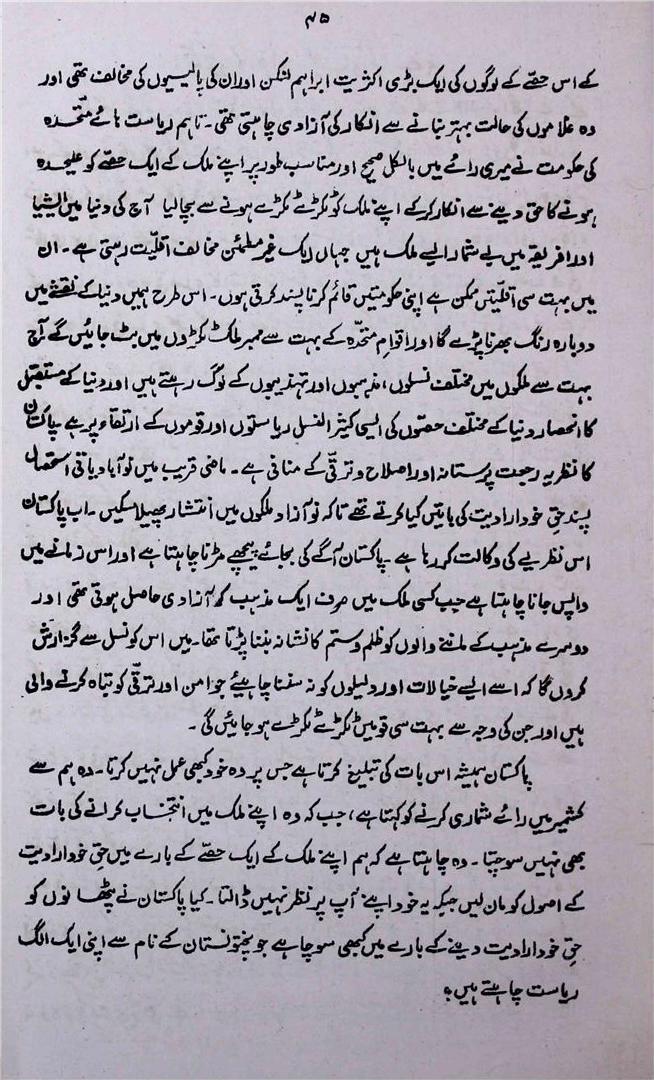 ۴۵
کے اس حصّے کے لوگوں کی ایک بڑی اکثریت ابراہم لنکن اور ان کی پالیسیوں کی مخالف تھی اور
وہ غلاموں کی حالت بہتر بنانے سے انکار کی آزادی چاہتی تھی۔ تاہم ریاست ہائے متّحدہ
کی حکومت نے میری رائے میں بالکل صحیح اور مناسب طور پر اپنے ملک کے ایک حصّے کو علیٰحدہ
ہونے کا حق دینے سے انکار کر کے اپنے ملک کو ٹکڑے ٹکڑے ہونے سے بچا لیا آج کی دنیا میں ایشیا
اور افریقہ میں بے شمار ایسے ملک ہیں جہاں ایک غیر مطمئن مخالف اقلیّت رہتی ہے۔ ان
میں بہت سی اقلیّتیں ممکن ہے اپنی حکومتیں قائم کرنا پسند کرتی ہوں۔ اس طرح ہمیں دنیا کے نقشے میں
دوبارہ رنگ بھرنا پڑے گا اور اقوامِ متّحدہ کے بہت سے ممبر ملک ٹکڑوں میں بٹ جائیں گے آج
بہت سے ملکوں میں مختلف نسلوں، مذہبوں اور تہذیبوں کے لوگ رہتے ہیں اور دنیا کے مستقبل
کا انحصار دنیا کے مختلف حصّوں کی ایسی کثیر النسل ریاستوں اور قوموں کے ارتقاء پر ہے پاکستان
کا نظریہ رجعت پرستانہ اور اصلاح و ترقّی کے منافی ہے۔ ماضی قریب میں نوآبادیاتی استحصال
پسند حقِ خود ارادیت کی باتیں کیا کرتے تھے تاکہ نو آزاد ملکوں میں انتشار پھیلا سکیں۔ اب پاکستان
اس نظریے کی وکالت کر رہا ہے۔ پاکستان آگے کی بجائے پیچھے مڑنا چاہتا ہے اور اس زمانے میں
واپس جانا چاہتا ہے جب کسی ملک میں صرف ایک مذہب کو آزادی حاصل ہوتی تھی اور
دوسرے مذہب کے ماننے والوں کو ظلم و ستم کا نشانہ بننا پڑتا تھا۔ میں اس کونسل سے گزارش
کروں گا کہ اسے ایسے خیالات اور دلیلوں کو نہ سننا چاہیئے جو امن اور ترقّی کو تباہ کرنے والی
ہیں اور جن کی وجہ سے بہت سی قومیں ٹکڑے ٹکڑے ہو جائیں گی۔
پاکستان ہمیشہ اس بات کی تبلیغ کرتا ہے جس پر وہ خود کبھی عمل نہیں کرتا۔ وہ ہم سے
کشمیر میں رائے شماری کرنے کو کہتا ہے، جب کہ وہ اپنے ملک میں انتخاب کرانے کی بات
بھی نہیں سوچتا۔ وہ چاہتا ہے کہ ہم اپنے ملک کے ایک حصّے کے بارے میں حقِ خود ارادیت
کے اصول کو مان لیں جبکہ یہ خود اپنے آپ پر نظر نہیں ڈالتا۔ کیا پاکستان نے پٹھانوں کو
حقِ خود ارادیت دینے کے بارے میں کبھی سوچا ہے جو پختونستان کے نام سے اپنی ایک الگ
ریاست چاہتے ہیں؟